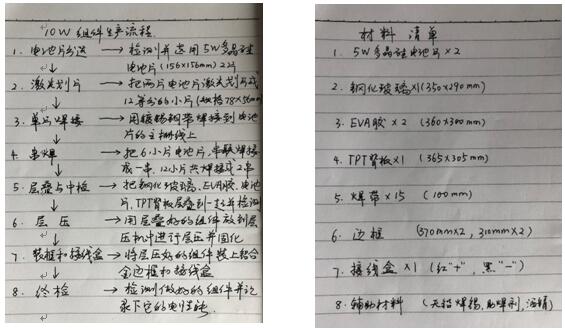 10W 组件生产流程
1. 电池片分选 → 检测并选用5W多晶硅
电池片(156×156mm) 2片
↓
2. 激光划片 → 把两片电池片激光划片成
↓ 12等分的小片(规格78×56mm)
3. 单片焊接 → 用接锡铜带焊接到电池
↓ 片的主栅线上
4. 串焊 → 把6小片电池片,串联焊接
↓ 成一串,12小片共焊接成2串
5. 层叠与中检 → 把钢化玻璃、EVA胶、电池
↓ 片、TPT背板层叠到一起并检测
6. 层压 → 用层叠好的组件放到层
↓ 压机中进行层压并固化
7. 装框和接线盒 → 将层压好的组件装上铝合
↓ 金边框和接线盒
8. 终检 → 检测做好的组件并记
录下它的电性能.
材料清单
1. 5W多晶硅电池片×2
2. 钢化玻璃×1(350×290mm)
3. EVA胶×2 (360×300mm)
4. TPT背板×1 (365×305mm)
5. 焊带×15 (100mm)
6. 边框 (370mm×2, 310mm×2)
7. 接线盒×1 (红"+", 黑"-")
8. 辅助材料 (无铅焊锡, 助焊剂, 酒精)